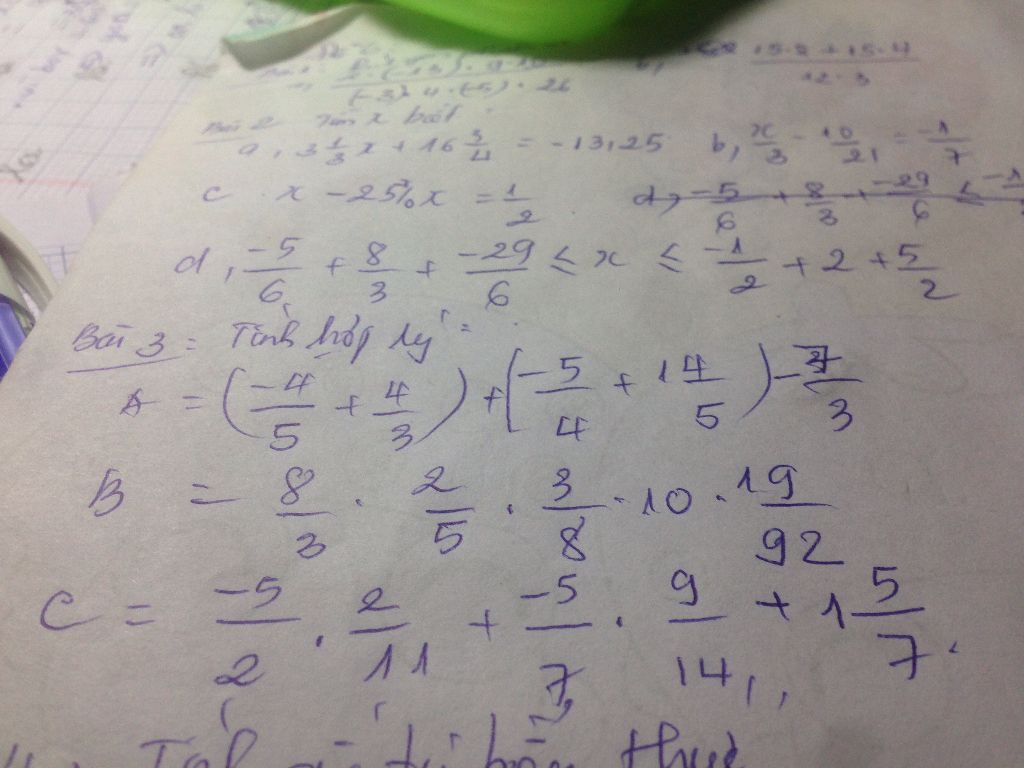 15.8 + 15.4 / 12.3
(-3).4.(-5).26
Bài 2 Tìm x biết
a, 3 1/3 x + 16 3/4 = -13,25 b, x/3 - 10/21 = -1/7
c x - 25% x = 1/2 d, -5/6 + 8/3 + -29/6 ≤ -1
d, -5/6 + 8/3 + -29/6 ≤ x ≤ -1/2 + 2 + 5/2
Bài 3: Tính hợp lý:
A = (-4/5 + 4/3) + (-5/4 + 14/5) - 7/3
B = 8/3 . 2/5 . 3/8 . 10 . 19/92
C = -5/2 . 2/11 + -5/7 . 9/14 + 1 5/7.